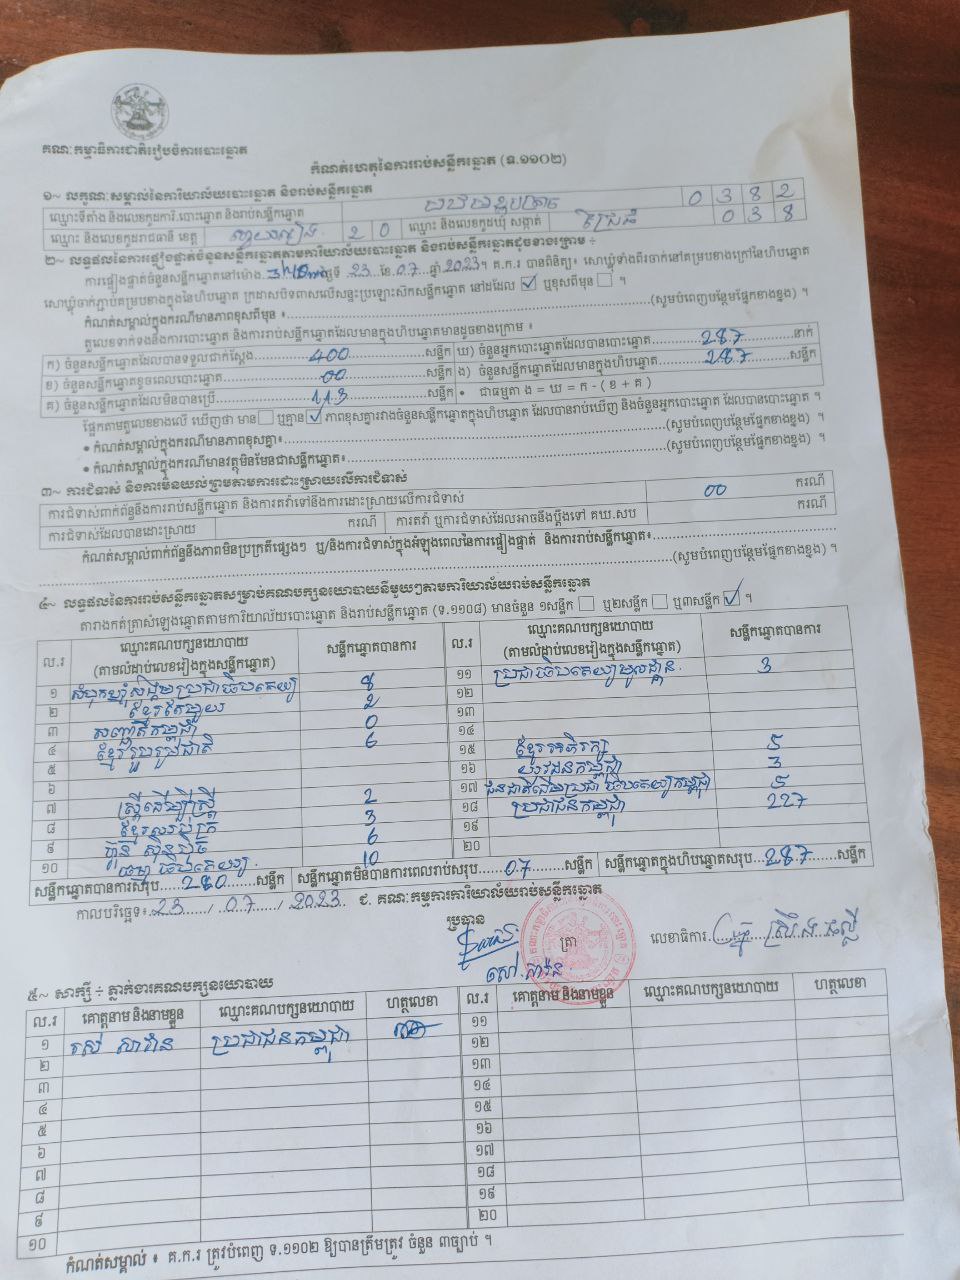 គណៈកម្មាធិការជាតិរៀបចំការបោះឆ្នោត
កំណត់ហេតុនៃការរាប់សន្លឹកឆ្នោត (ទ.១១០២)
១~ លក្ខណៈសម្គាល់នៃការិយាល័យបោះឆ្នោត និងរាប់សន្លឹកឆ្នោត
ឈ្មោះទីតាំង និងលេខកូដការិ.បោះឆ្នោត និងរាប់សន្លឹកឆ្នោត 0 3 8 2
ឈ្មោះ និងលេខកូដរាជធានី ខេត្ត ស្វាយរៀង 2 0 ឈ្មោះ និងលេខកូដឃុំ សង្កាត់ 0 3 8
២~ លទ្ធផលនៃការផ្ទៀងផ្ទាត់ចំនួនសន្លឹកឆ្នោតតាមការិយាល័យបោះឆ្នោត និងរាប់សន្លឹកឆ្នោតដូចខាងក្រោម ÷
ការផ្ទៀងផ្ទាត់ចំនួនសន្លឹកឆ្នោតនៅម៉ោង ថ្ងៃទី 23 ខែ 07 ឆ្នាំ 2023 ។ គ.ក.រ បានពិនិត្យ៖ សោឃ្លុំទាំងពីរចាក់នៅគម្របខាងក្រៅនៃហិបឆ្នោត
សោឃ្លុំចាក់ភ្ជាប់គម្របខាងក្នុងនៃហិបឆ្នោត ក្រដាសបិទពាសលើសន្ទះប្រឡោះសឹកសន្លឹកឆ្នោត នៅដដែល ☑ ឬខុសពីមុន ☐ ។
កំណត់សម្គាល់ក្នុងករណីមានភាពខុសពីមុន ៖ (សូមបំពេញបន្ថែមផ្នែកខាងខ្នង) ។
តួលេខទាក់ទងនឹងការបោះឆ្នោត និងការរាប់សន្លឹកឆ្នោតដែលមានក្នុងហិបឆ្នោតមានដូចខាងក្រោម ៖
ក) ចំនួនសន្លឹកឆ្នោតដែលបានទទួលជាក់ស្តែង 400 សន្លឹក ឃ) ចំនួនអ្នកបោះឆ្នោតដែលបានបោះឆ្នោត 287 នាក់
ខ) ចំនួនសន្លឹកឆ្នោតខូចពេលបោះឆ្នោត 00 សន្លឹក ង) ចំនួនសន្លឹកឆ្នោតដែលមានក្នុងហិបឆ្នោត 287 សន្លឹក
គ) ចំនួនសន្លឹកឆ្នោតដែលមិនបានប្រើ 113 សន្លឹក • ជាធម្មតា ង = ឃ = ក - ( ខ + គ )
ផ្អែកតាមតួលេខខាងលើ ឃើញថា មាន ☐ ឬគ្មាន ☑ ភាពខុសគ្នារវាងចំនួនសន្លឹកឆ្នោតក្នុងហិបឆ្នោត ដែលបានរាប់ឃើញ និងចំនួនអ្នកបោះឆ្នោត ដែលបានបោះឆ្នោត ។
• កំណត់សម្គាល់ក្នុងករណីមានភាពខុសគ្នា៖ (សូមបំពេញបន្ថែមផ្នែកខាងខ្នង) ។
• កំណត់សម្គាល់ក្នុងករណីមានវត្ថុមិនមែនជាសន្លឹកឆ្នោត៖ (សូមបំពេញបន្ថែមផ្នែកខាងខ្នង) ។
៣~ ការជំទាស់ និងការមិនយល់ព្រមតាមការដោះស្រាយលើការជំទាស់
ការជំទាស់ពាក់ព័ន្ធនឹងការរាប់សន្លឹកឆ្នោត និងការតវ៉ាទៅនឹងការដោះស្រាយលើការជំទាស់ 00 ករណី
ការជំទាស់ដែលបានដោះស្រាយ ករណី ការតវ៉ា ឬការជំទាស់ដែលអាចនឹងប្តឹងទៅ គឃ.សប ករណី
កំណត់សម្គាល់ពាក់ព័ន្ធនឹងភាពមិនប្រក្រតីផ្សេងៗ ឬ/និងការជំទាស់ក្នុងអំឡុងពេលនៃការផ្ទៀងផ្ទាត់ និងការរាប់សន្លឹកឆ្នោត៖
(សូមបំពេញបន្ថែមផ្នែកខាងខ្នង) ។
៤~ លទ្ធផលនៃការរាប់សន្លឹកឆ្នោតសម្រាប់គណបក្សនយោបាយនីមួយៗតាមការិយាល័យរាប់សន្លឹកឆ្នោត
តារាងកត់ត្រាសំឡេងឆ្នោតតាមការិយាល័យបោះឆ្នោត និងរាប់សន្លឹកឆ្នោត (ទ.១១០៨) មានចំនួន ១សន្លឹក ☐ ឬ២សន្លឹក ☐ ឬ៣សន្លឹក ☑ ។
ល.រ ឈ្មោះគណបក្សនយោបាយ (តាមលំដាប់លេខរៀងក្នុងសន្លឹកឆ្នោត) សន្លឹកឆ្នោតបានការ ល.រ ឈ្មោះគណបក្សនយោបាយ (តាមលំដាប់លេខរៀងក្នុងសន្លឹកឆ្នោត) សន្លឹកឆ្នោតបានការ
១ សំបុកឃ្មុំសង្គមប្រជាធិបតេយ្យ 8 ១១ ប្រជាធិបតេយ្យមូលដ្ឋាន 3
២ ខ្មែរតែមួយ 2 ១២
៣ សញ្ជាតិកម្ពុជា 0 ១៣
៤ ខ្មែររួបរួមជាតិ 6 ១៤
៥ ១៥ ខ្មែរអភិរក្ស 5
៦ ១៦ យុវជនកម្ពុជា 3
៧ ស្ត្រីដើម្បីស្ត្រី 2 ១៧ ជនជាតិដើមប្រជាធិបតេយ្យកម្ពុជា 5
៨ ខ្មែរឈប់ក្រ 3 ១៨ ប្រជាជនកម្ពុជា 227
៩ ហ៊្វុនស៊ិនប៉ិច 6 ១៩
១០ ធម្មាធិបតេយ្យ 10 ២០
សន្លឹកឆ្នោតបានការសរុប 280 សន្លឹក សន្លឹកឆ្នោតមិនបានការពេលរាប់សរុប 07 សន្លឹក សន្លឹកឆ្នោតក្នុងហិបឆ្នោតសរុប 287 សន្លឹក
កាលបរិច្ឆេទ៖ 23 / 07 / 2023 ជ. គណៈកម្មការការិយាល័យរាប់សន្លឹកឆ្នោត
ប្រធាន ត្រា លេខាធិការ
៥~ សាក្សី ÷ ភ្នាក់ងារគណបក្សនយោបាយ
ល.រ គោត្តនាម និងនាមខ្លួន ឈ្មោះគណបក្សនយោបាយ ហត្ថលេខា ល.រ គោត្តនាម និងនាមខ្លួន ឈ្មោះគណបក្សនយោបាយ ហត្ថលេខា
១ រស់ សាវ៉ាន ប្រជាជនកម្ពុជា ១១
២ ១២
៣ ១៣
៤ ១៤
៥ ១៥
៦ ១៦
៧ ១៧
៨ ១៨
៩ ១៩
១០ ២០
កំណត់សម្គាល់ ៖ គ.ក.រ ត្រូវបំពេញ ទ.១១០២ ឱ្យបានត្រឹមត្រូវ ចំនួន ៣ច្បាប់ ។